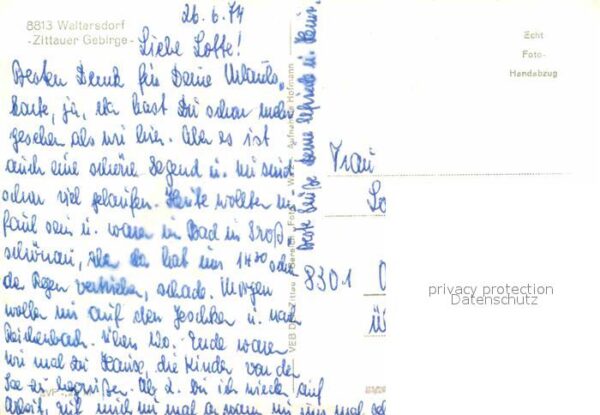 8813 Waltersdorf
-Zittauer Gebirge-
26.6.74
Liebe Lotte!
Besten Dank für Deine Urlaubs-
karte, ja, da hast Du schon mehr
gesehen als wir hier. Aber es ist
auch eine schöne Gegend u. wir sind
schon viel gelaufen. Heute wollten wir
faul sein u. waren im Bad in Groß
schönau, aber da hat uns 14³⁰ schon
der Regen vertrieben, schade. Morgen
wollen wir auf den Jeschken u. nach
Reichenbach. Übers Wo. Ende waren
wir mal zu Hause, die Kinder von der
See zu begrüßen. Ab 2. bin ich wieder auf
Arbeit,
beste Grüße Deine Elfriede u. Heinz
Aufnahme Hofmann
Echt
Foto-
Handabzug
Frau
Lo
8301
privacy protection
Datenschutz